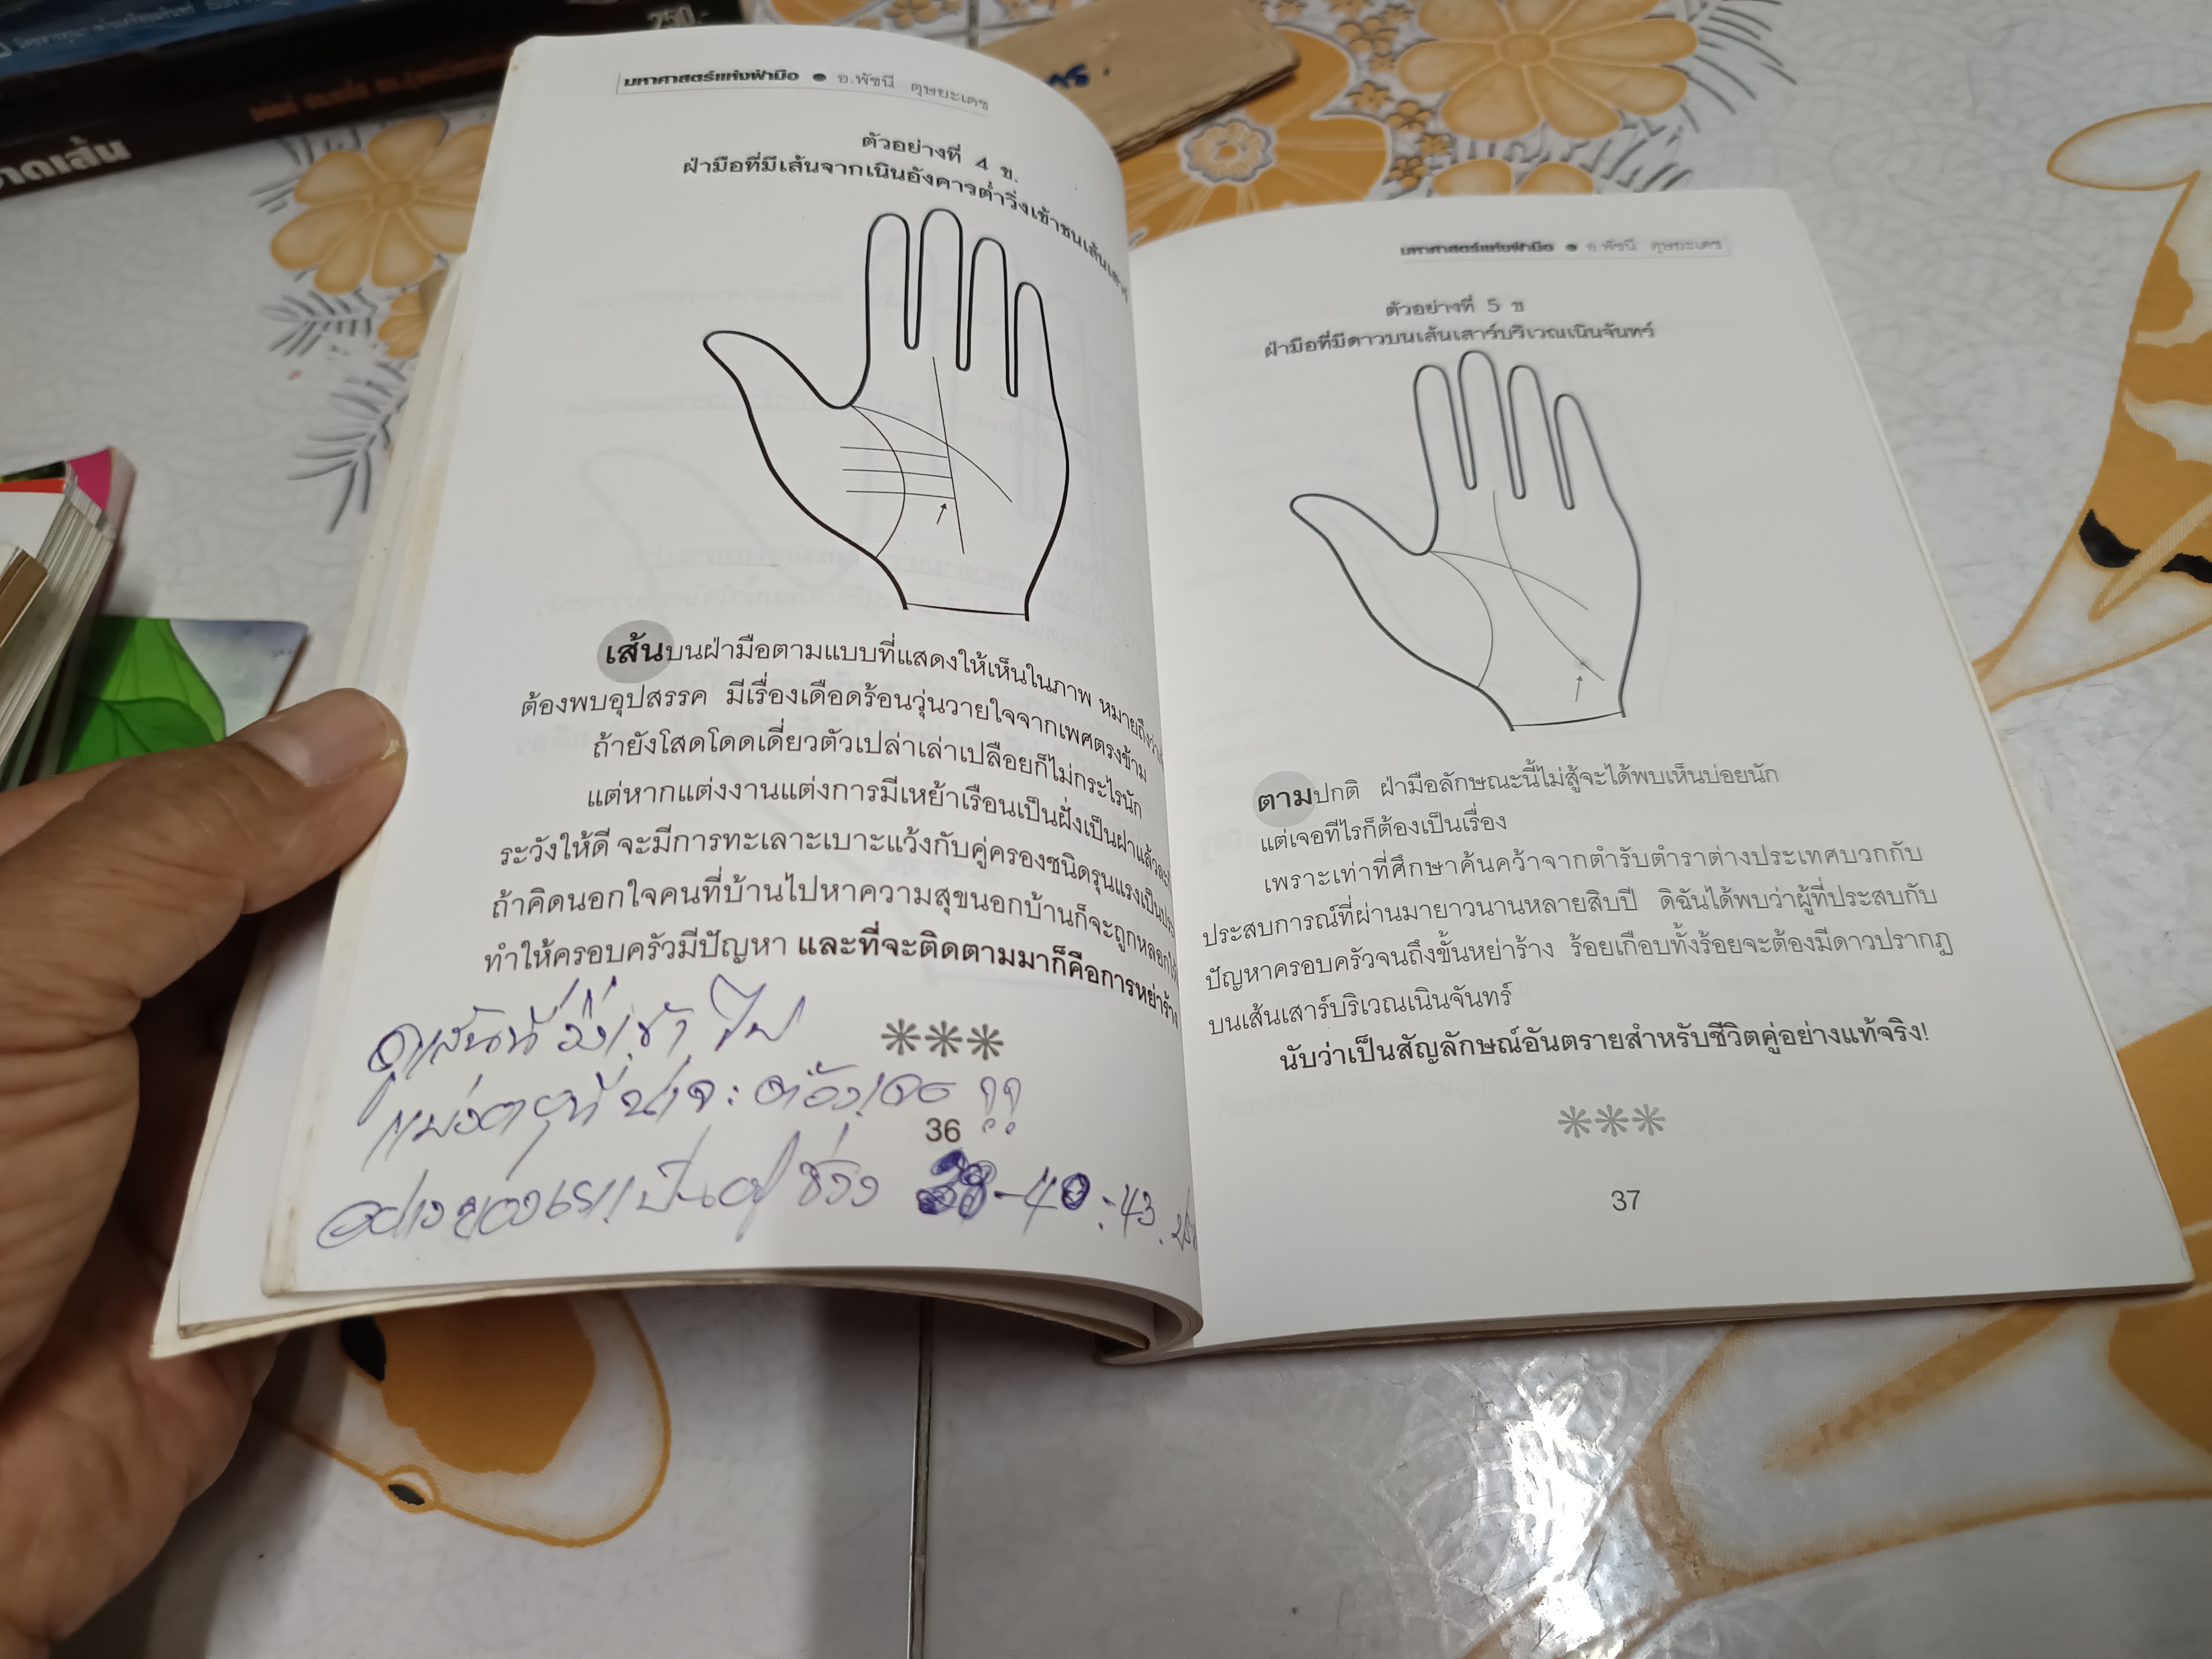 250.-
าดเส้น
มหาศาสตร์แห่งฝ่ามือ ● อ.พัชนี ตุษยะเดช
ตัวอย่างที่ 4 ข.
ฝ่ามือที่มีเส้นจากเนินอังคารต่ำวิ่งเข้าชนเส้นเสาร์
เส้นบนฝ่ามือตามแบบที่แสดงให้เห็นในภาพ หมายถึงว่า
ต้องพบอุปสรรค มีเรื่องเดือดร้อนวุ่นวายใจจากเพศตรงข้าม
ถ้ายังโสดโดดเดี่ยวตัวเปล่าเล่าเปลือยก็ไม่กระไรนัก
แต่หากแต่งงานแต่งการมีเหย้าเรือนเป็นฝั่งเป็นฝาแล้วละ
ระวังให้ดี จะมีการทะเลาะเบาะแว้งกับคู่ครองชนิดรุนแรงเป็น
ถ้าคิดนอกใจคนที่บ้านไปหาความสุขนอกบ้านก็จะถูกหลอก
ทำให้ครอบครัวมีปัญหา และที่จะติดตามมาก็คือการหย่าร้าง
***
ดูเส้นนี้ วิ่งเข้า ไป
แบ่งอายุที่ น่าจะ ต้องเจอ !!
36
อย่างของเรา เป็นอยู่ ช่วง 38-40-43.
มหาศาสตร์แห่งฝ่ามือ ● อ.พัชนี ตุษยะเดช
ตัวอย่างที่ 5 ข
ฝ่ามือที่มีดาวบนเส้นเสาร์บริเวณเนินจันทร์
ตามปกติ ฝ่ามือลักษณะนี้ไม่สู้จะได้พบเห็นบ่อยนัก
แต่เจอทีไรก็ต้องเป็นเรื่อง
เพราะเท่าที่ศึกษาค้นคว้าจากตำรับตำราต่างประเทศบวกกับ
ประสบการณ์ที่ผ่านมายาวนานหลายสิบปี ดิฉันได้พบว่าผู้ที่ประสบกับ
ปัญหาครอบครัวจนถึงขั้นหย่าร้าง ร้อยเกือบทั้งร้อยจะต้องมีดาวปรากฏ
บนเส้นเสาร์บริเวณเนินจันทร์
นับว่าเป็นสัญลักษณ์อันตรายสำหรับชีวิตคู่อย่างแท้จริง!
***
37